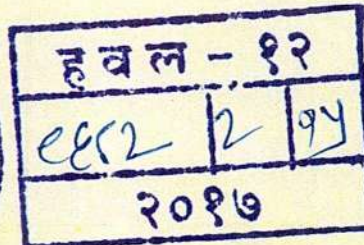 हवल - १२
९६८२ 2 १५
२०१७